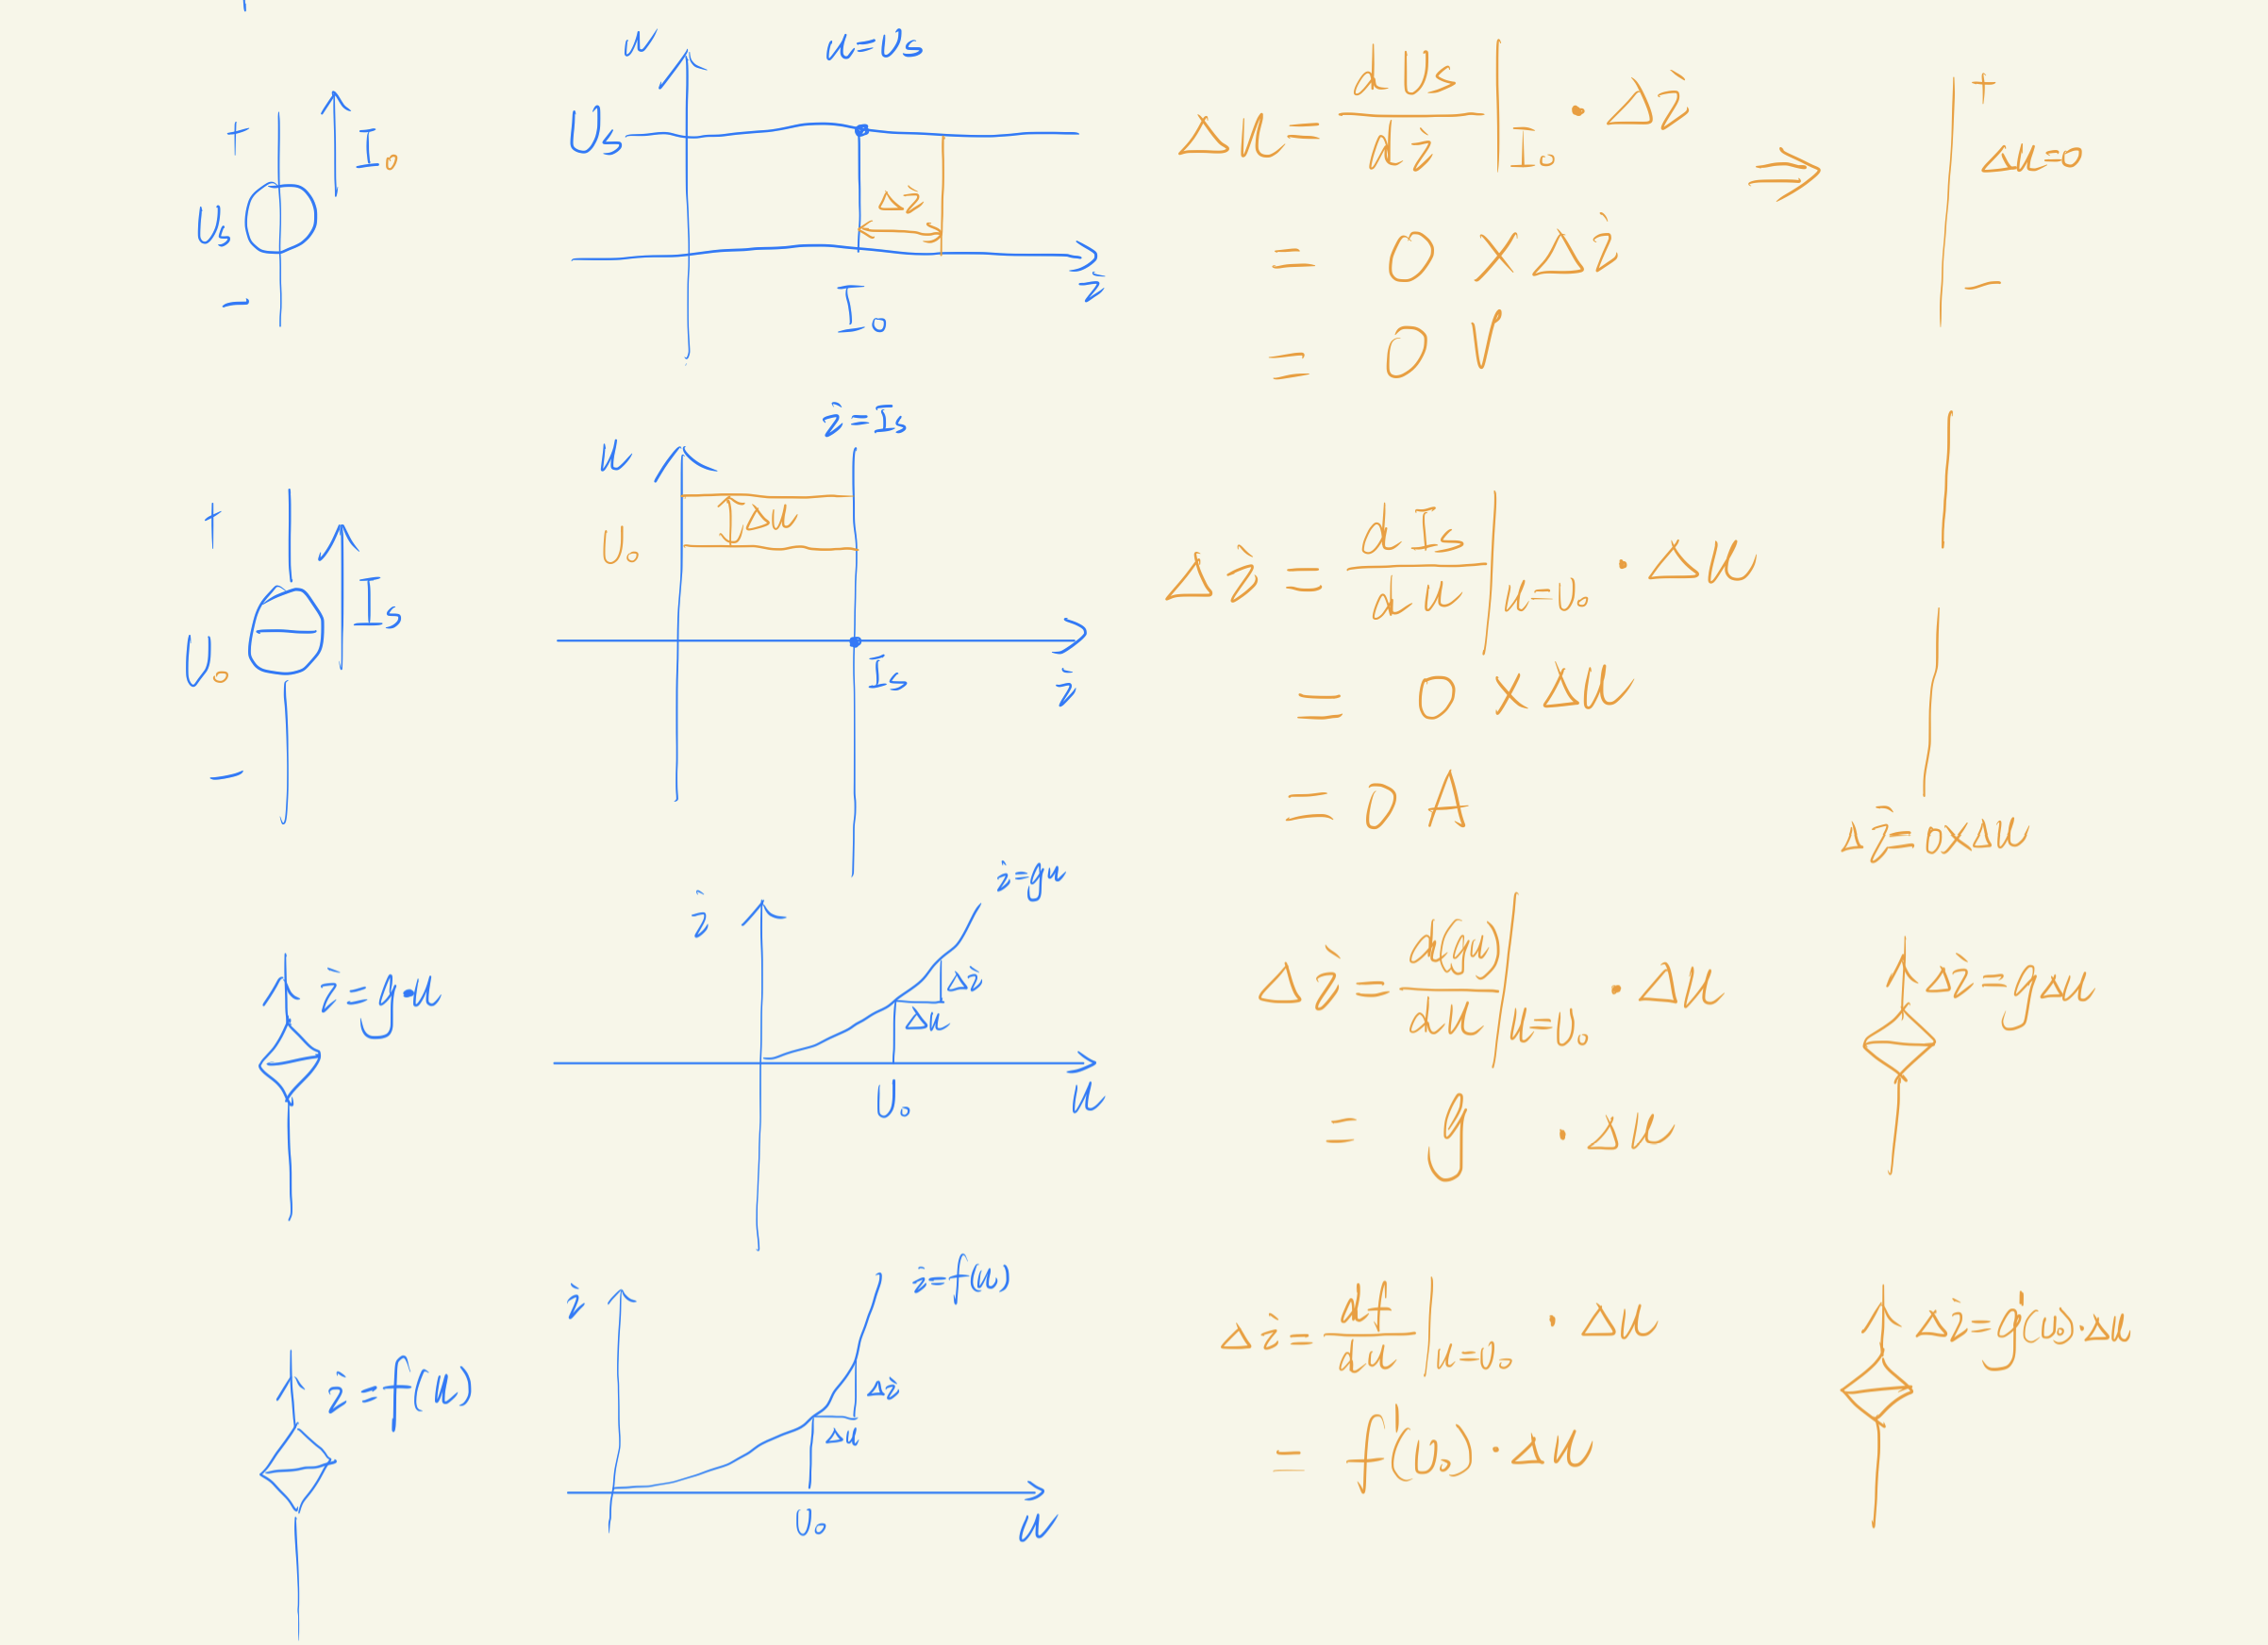 u
u=Us
+
I₀
Us
-
Us
Δi
I₀
i
Δu= dUs/di |I₀ · Δi
⇒
= 0 × Δi
= 0 V
+
Δu=0
-
i=Is
u
+
Is
U₀
-
Δu
U₀
Is
i
Δi = dIs/du |u=U₀ · Δu
= 0 × Δu
= 0 A
Δi=0×Δu
i=g·u
i
i=gu
Δi
Δu
U₀
u
Δi = d(gu)/du |u=U₀ · Δu
= g · Δu
Δi=gΔu
i=f(u)
i
i=f(u)
Δi
Δu
U₀
u
Δi= df/du |u=U₀ · Δu
= f'(U₀)·Δu
Δi=g'(U₀)·Δu